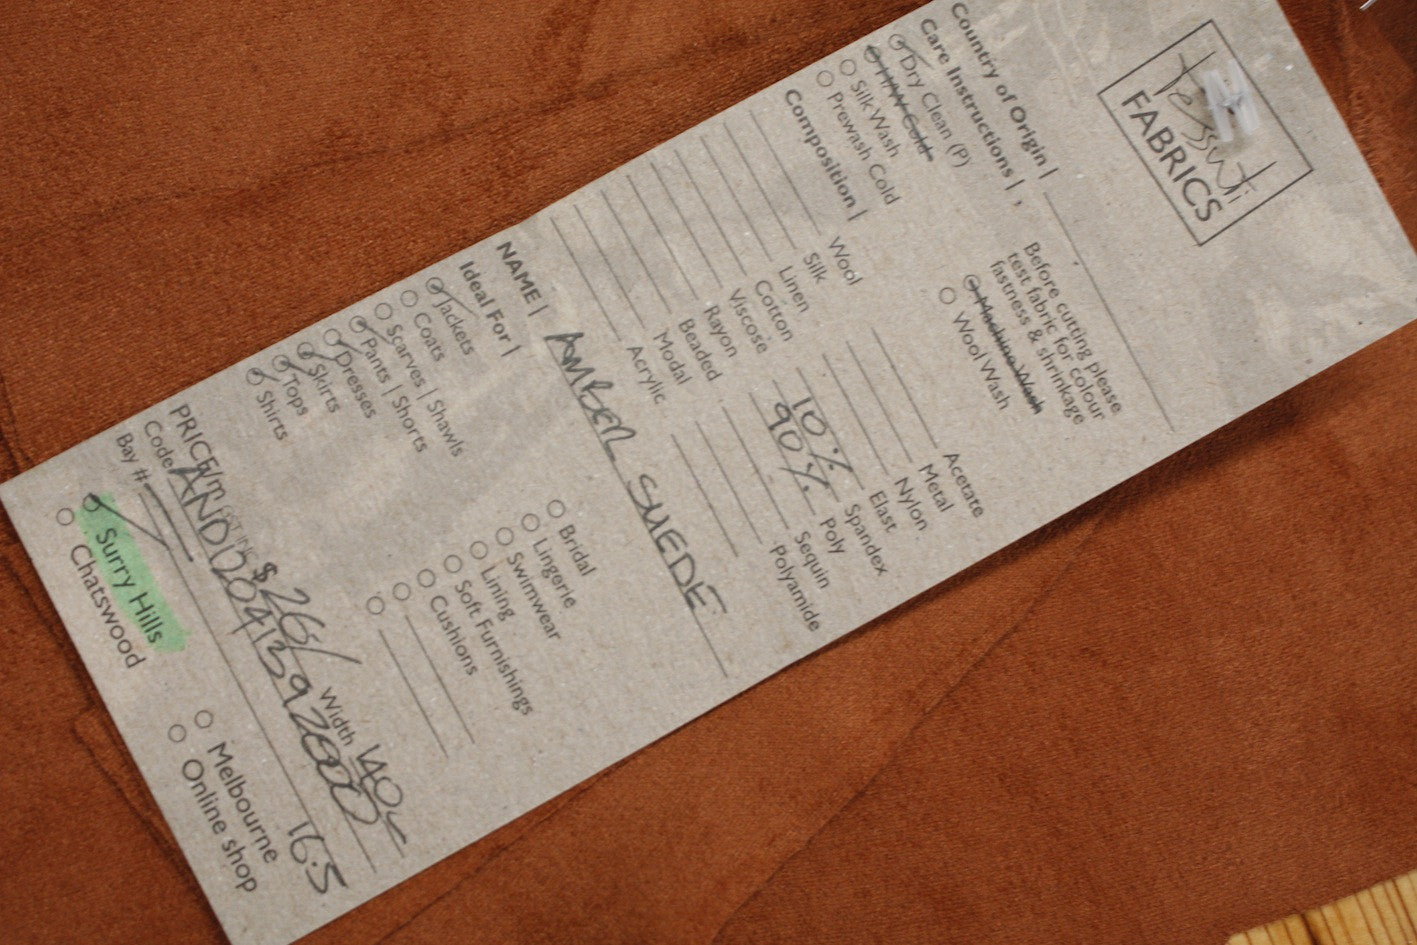 tessuti
FABRICS
Before cutting please
test fabric for colour
fastness & shrinkage
Country of Origin |
Care Instructions | ,
Dry Clean (P)
H/W Cold
Silk Wash
Prewash Cold
Machine Wash
Wool Wash
Composition |
Wool
Silk
Linen
Cotton
Viscose
Rayon
Beaded
Modal
Acrylic
Acetate
Metal
Nylon
Elast
10% Spandex
90% Poly
Sequin
Polyamide
NAME | AMBER SUEDE
Ideal For |
Jackets
Coats
Scarves | Shawls
Pants | Shorts
Dresses
Skirts
Tops
Shirts
Bridal
Lingerie
Swimwear
Lining
Soft Furnishings
Cushions
PRICE/m GST INC $26/ Width 140
Bay # 16.5
Surry Hills
Chatswood
Melbourne
Online shop